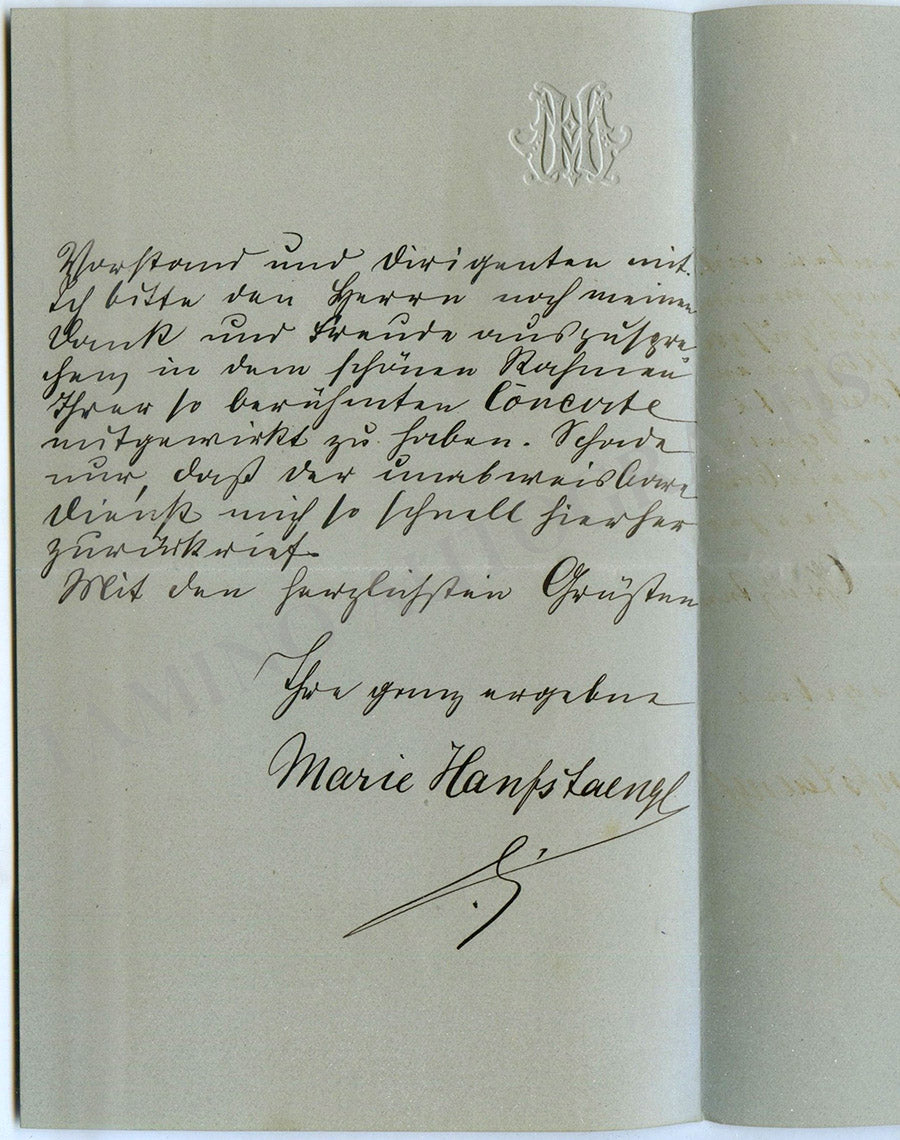 Vorstand und Dirigenten mit.
Ich bitte den Herrn noch meinen
Dank und Freude auszuspre
chen, in dem schönen Rahmen
Ihrer so berühmten Concerte
mitgewirkt zu haben. Schade
nur, daß der unabweisbare
Dienst mich so schnell hierher
zurückrief.
Mit den herzlichsten Grüßen
Ihre ganz ergebne
Marie Hanfstaengl